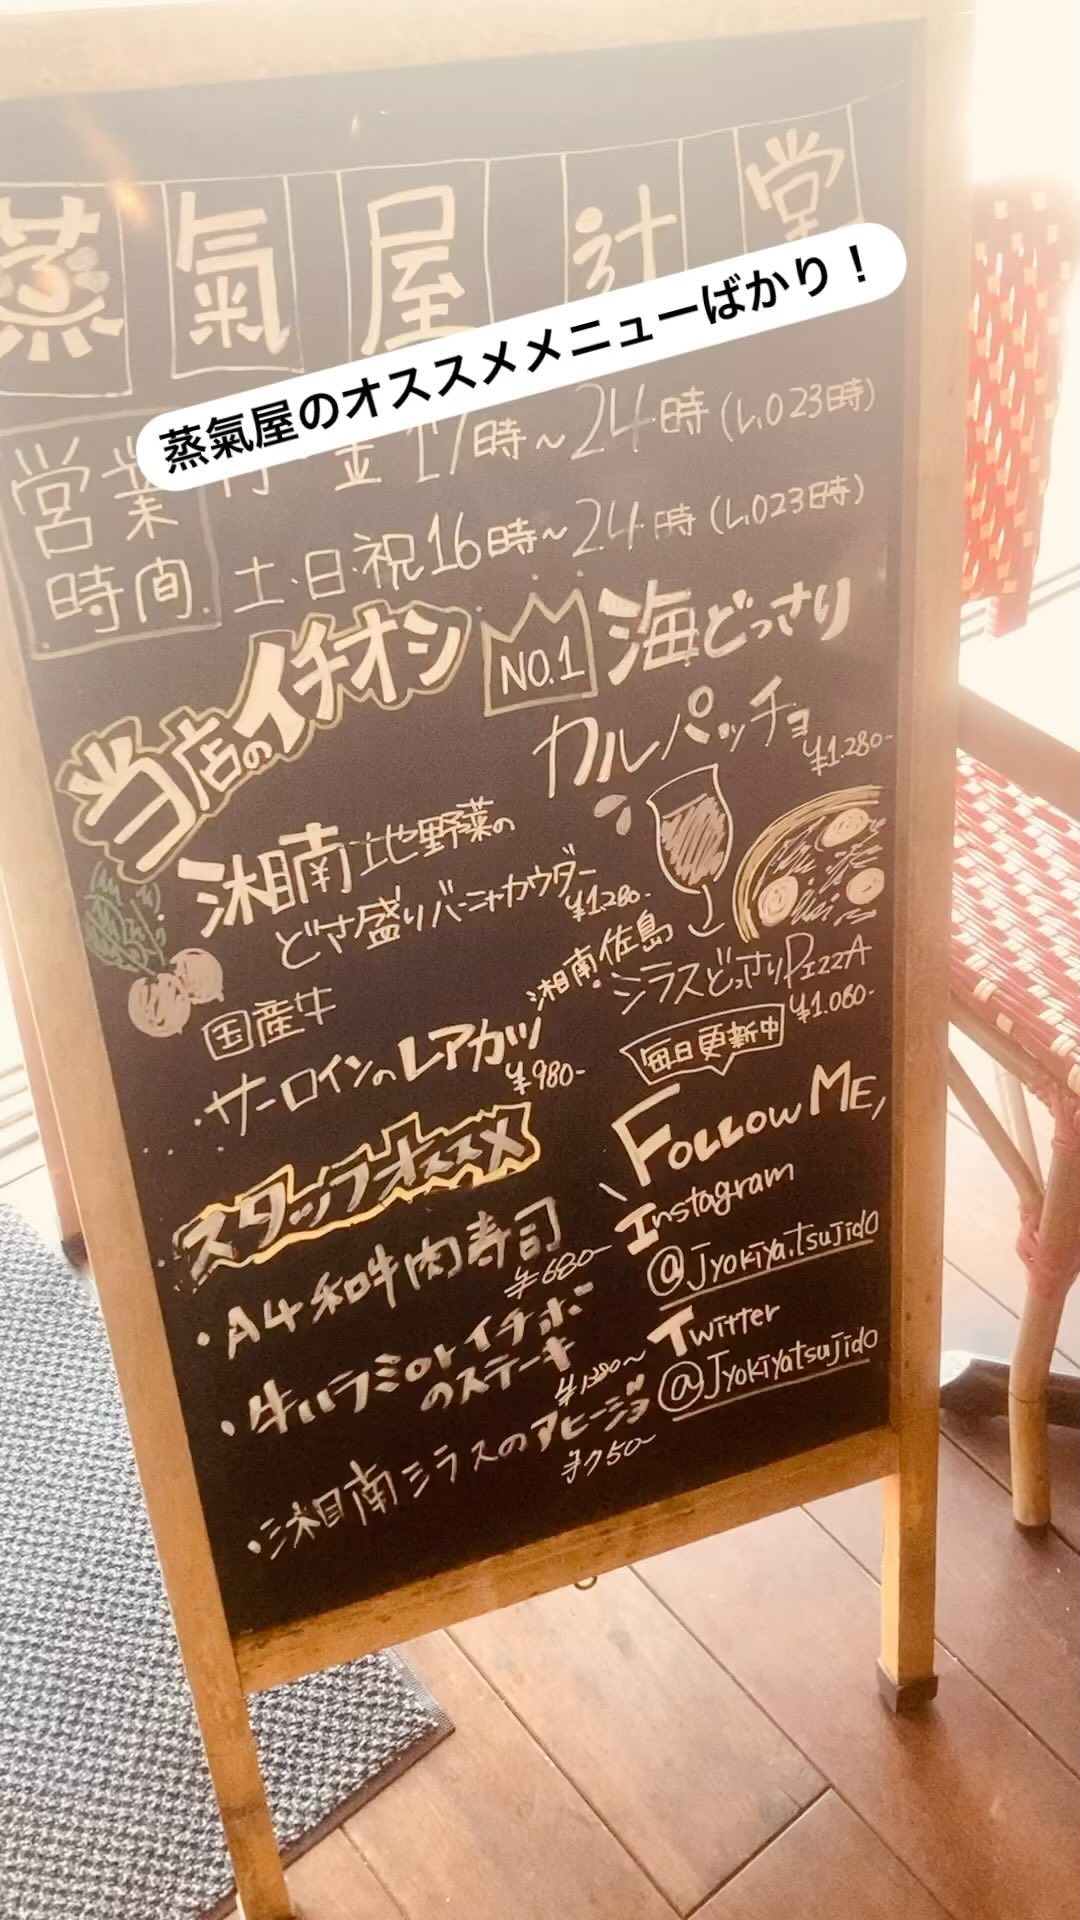 蒸氣屋 辻堂
蒸氣屋のオススメメニューばかり！
営業時間
金 17時～24時 (L.O 23時)
土・日・祝 16時～24時 (L.O 23時)
当店のイチオシ
NO.1 海どっさり
カルパッチョ
¥1.280-
湘南地野菜の
どさ盛りバーニャカウダー
¥1.280-
湘南・佐島
シラスどっさりPIZZA
¥1.080-
国産牛
サーロインのレアカツ
¥980-
毎日更新中
FOLLOW ME,
Instagram
@jyokiya.tsujido
Twitter
@Jyokiyatsujido
スタッフオススメ
・A4和牛肉寿司
¥680-
・牛ハラミorイチボ
のステーキ
・湘南シラスのアヒージョ
¥750-